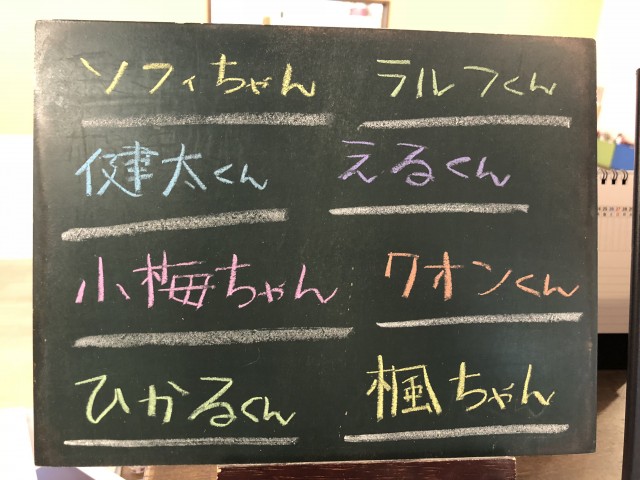 ソフィちゃん ラルフくん
健太くん えるくん
小梅ちゃん クオンくん
ひかるくん 楓ちゃん